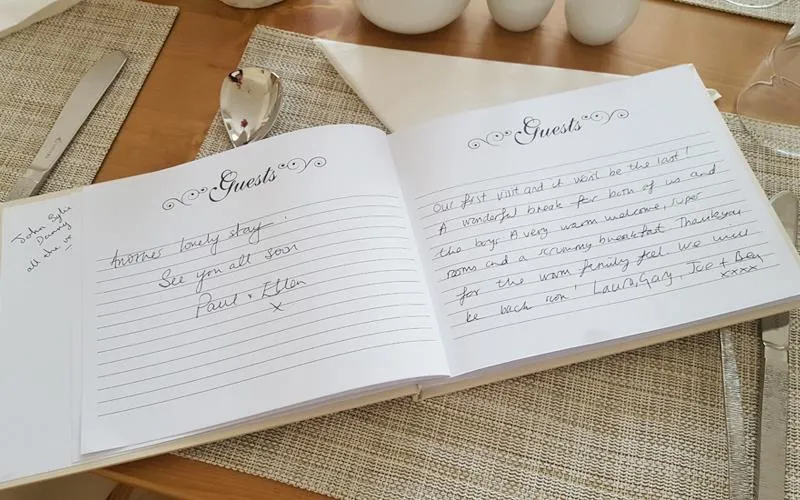 John Sylvie
Danny
all the
Guests
Another lonely stay.
See you all soon
Paul & Ellen
x
Guests
Our first visit and it won't be the last!
A wonderful break for both of us and
the boys. A very warm welcome, super
rooms and a scrummy breakfast. Thankyou
for the warm family feel. We will
be back soon! Laura, Gary, Joe + Ben
xxxx